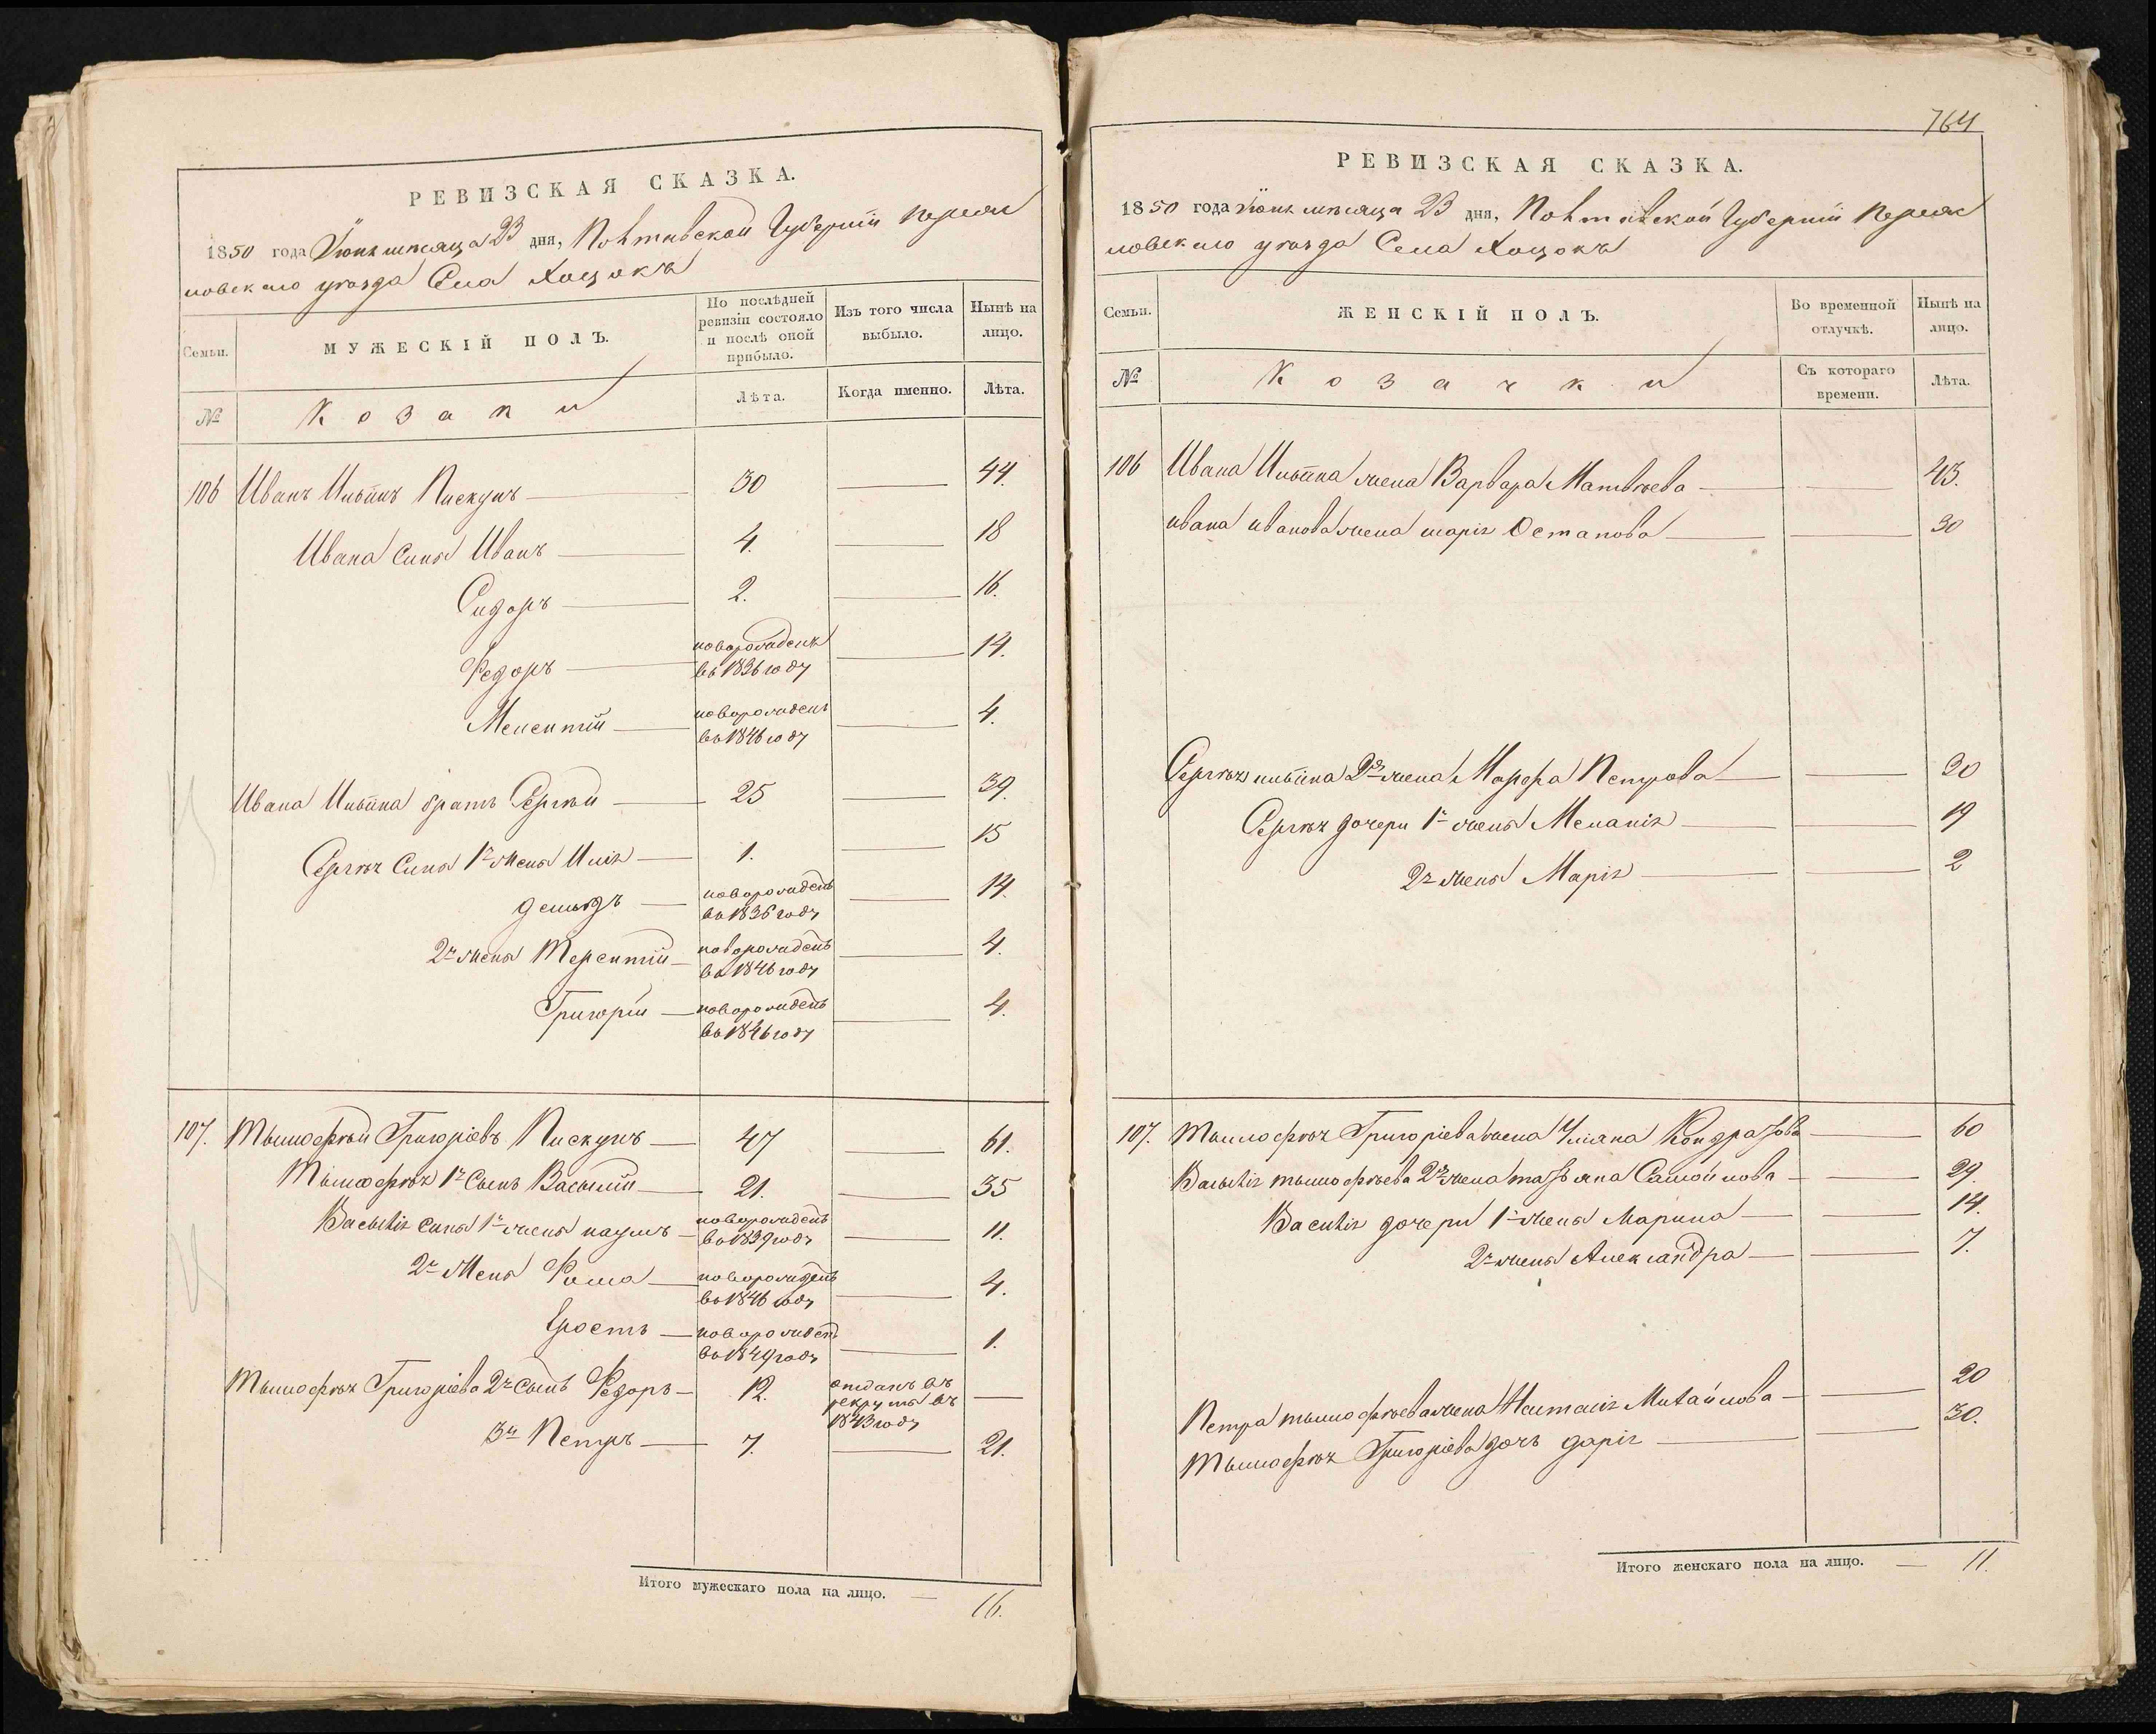 РЕВИЗСКАЯ СКАЗКА.
1850 года Июня месяца 23 дня, Полтавской Губернии Переяс
ловского уезда Села Хоцокъ
Семьи.
МУЖЕСКІЙ ПОЛЪ.
По послѣдней
ревизіи состояло
и послѣ оной
прибыло.
Изъ того числа
выбыло.
Нынѣ на
лицо.
№
Козаки
Лѣта.
Когда именно.
Лѣта.
106 Иванъ Ильинъ Пискунъ 30 44.
Ивана сынъ Иванъ 4. 18
Сидоръ 2. 16.
Федоръ новорожденъ 14.
въ 1836 году
Мелентій новорожденъ 4.
въ 1846 году
Ивана Ильина братъ Сергѣй 25 39.
Сергѣя сынъ 1й жены Илія 1. 15
Демидъ новорожденъ 14.
въ 1836 году
2й жены Терентій новорожденъ 4.
въ 1846 году
Григорій новорожденъ 4.
въ 1846 году
107. Тымофѣй Григоріевъ Пискунъ 47 61.
Тымофѣя 1й сынъ Васылій 21. 35
Васылія сынъ 1й жены Наумъ новорожденъ 11.
въ 1839 году
2й жены Фома новорожденъ 4.
въ 1846 году
новорожденъ 1.
въ 1849 году
Тымофѣя Григоріева 2й сынъ Федоръ 12. отданъ въ
рекруты въ
1843 году
3й Петръ 7. 21.
Итого мужескаго пола на лицо. 16.
764
РЕВИЗСКАЯ СКАЗКА.
1850 года Июня месяца 23 дня, Полтавской Губерній Переяс
ловского уезда Села Хоцокъ
Семьи.
ЖЕНСКІЙ ПОЛЪ.
Во временной
отлучкѣ.
Нынѣ на
лицо.
№
Козачки
Съ котораго
времени.
Лѣта.
106 Ивана Ильина жена Варвара Матвѣева 43.
Ивана Иванова жена Марія Остапова 30
Сергѣя Ильина 2я жена Марфа Петрова 20
Сергѣя дочери 1й жены Меланія 19
2й жены Марія 2
107. Тымофѣя Григоріева жена Уліяна Кондратова 60
Васылія Тымофѣева 2я жена Татьяна Самойлова 29.
Василія дочери 1й жены Марина 14.
2й жены Александра 7.
Петра Тымофѣева жена Наталія Михайлова 20
Тымофѣя Григоріева дочь Дарія 30.
Итого женскаго пола на лицо. 11.